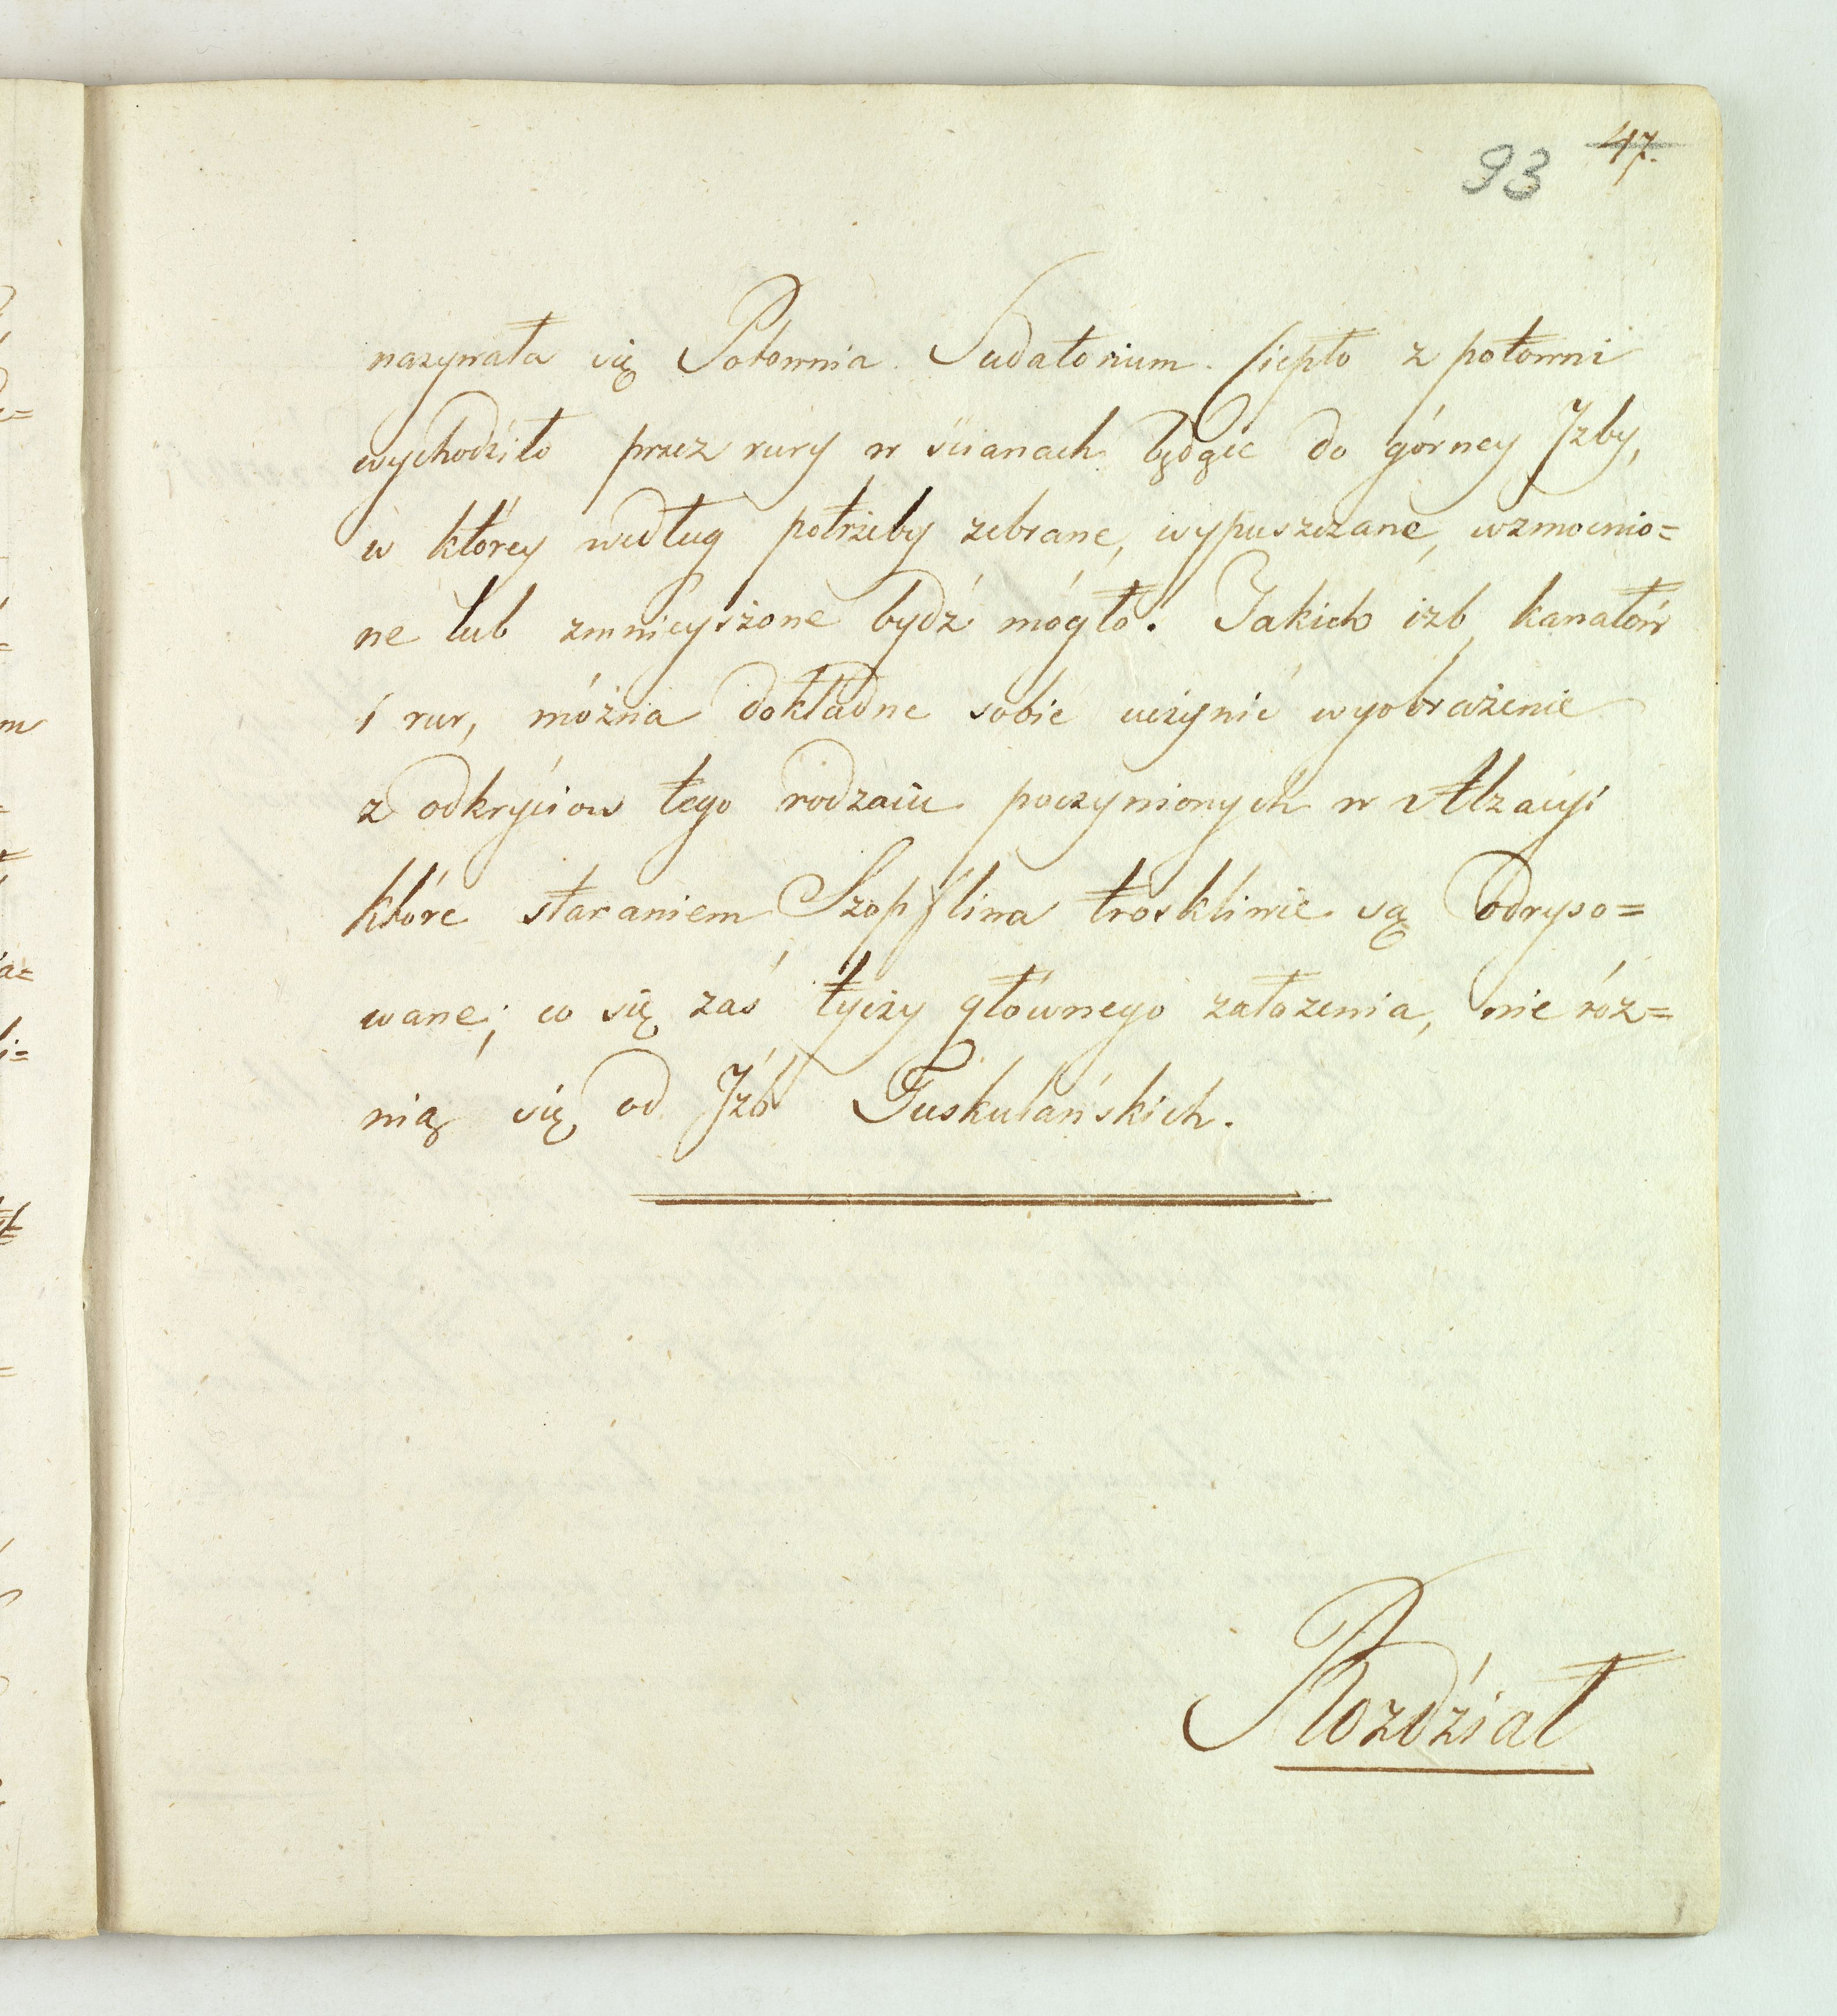 93 47.
nazywała się Potownia Sudatorium. Ciepło z potowni
wychodziło przez rury w ścianach będące do górney Izby,
w którey według potrzeby zebrane, wypuszczane, wzmocnio=
ne lub zmnieyszone bydź mogło. Jakich izb, kanałów
i rur, można dokładne sobie uczynić wyobrażenie
z odkryciow tego rodzaiu poczynionych w Alzacyi
które staraniem Szopflina troskliwie są odryso=
wane; co się zaś tyczy głównego założenia, nie róż=
nią się od Izb Tuskulańskich.
Rozdział